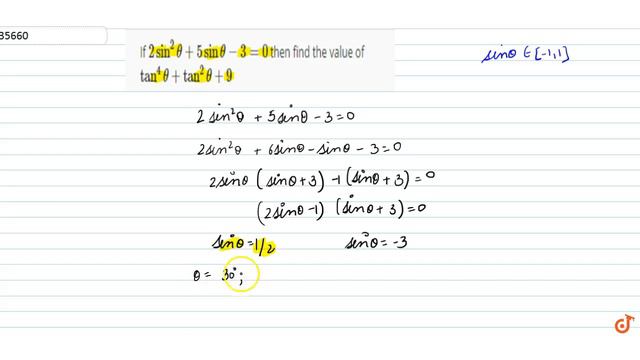 35660
If 2 sin² θ + 5 sin θ − 3 = 0 then find the value of
tan⁴ θ + tan² θ + 9
sinθ ∈ [-1,1]
2 sin²θ + 5 sinθ - 3 = 0
2 sin²θ + 6 sinθ - sinθ - 3 = 0
2 sinθ (sinθ + 3) - 1 (sinθ + 3) = 0
(2 sinθ - 1) (sinθ + 3) = 0
sinθ = 1/2 sinθ = -3
θ = 30° ;